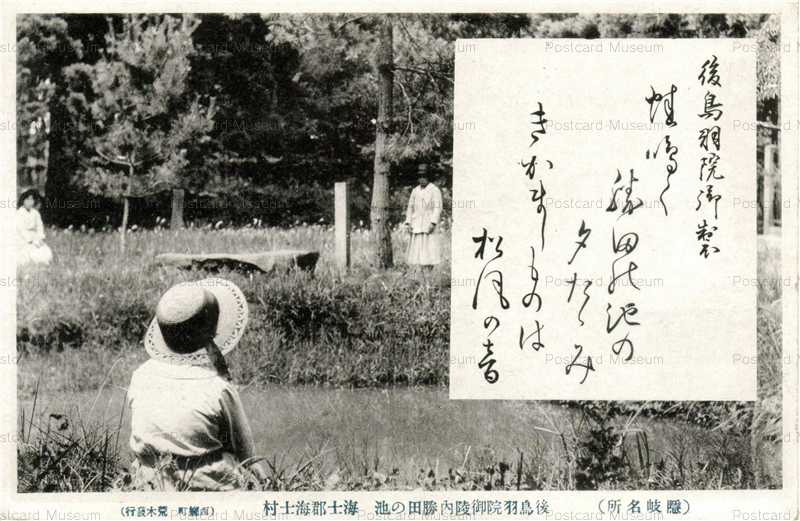 後鳥羽院御製
蛙鳴く
勝田の池の
夕たゝみ
きかましものは
松風の音
(隱岐名所)
後鳥羽院御陵內勝田の池 海士郡海士村
(西鄕町 荒木發行)
Postcard Museum